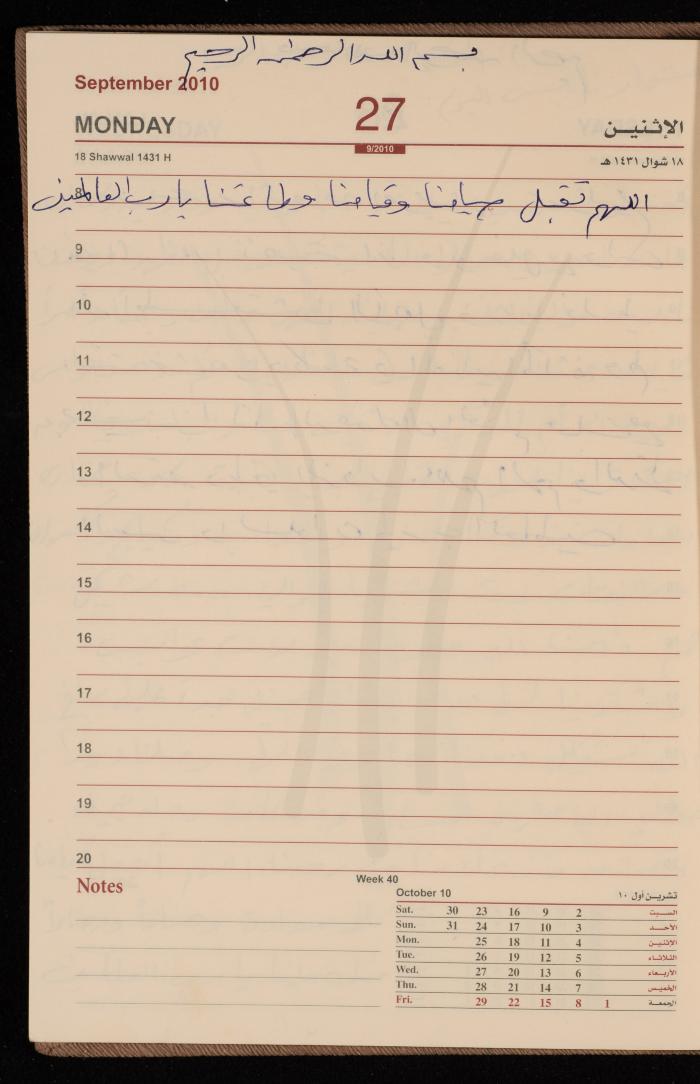 بسم الله الرحمن الرحيم
September 2010
MONDAY 27 الإثنين
9/2010
18 Shawwal 1431 H ١٨ شوال ١٤٣١ هـ
8 اللهم تقبل صيامنا وقيامنا وطاعتنا يا رب العالمين
9
10
11
12
13
14
15
16
17
18
19
20
Week 40
Notes
October 10 تشرين أول ١٠
Sat. 30 23 16 9 2 السبت
Sun. 31 24 17 10 3 الأحد
Mon. 25 18 11 4 الإثنين
Tue. 26 19 12 5 الثلاثاء
Wed. 27 20 13 6 الأربعاء
Thu. 28 21 14 7 الخميس
Fri. 29 22 15 8 1 الجمعة